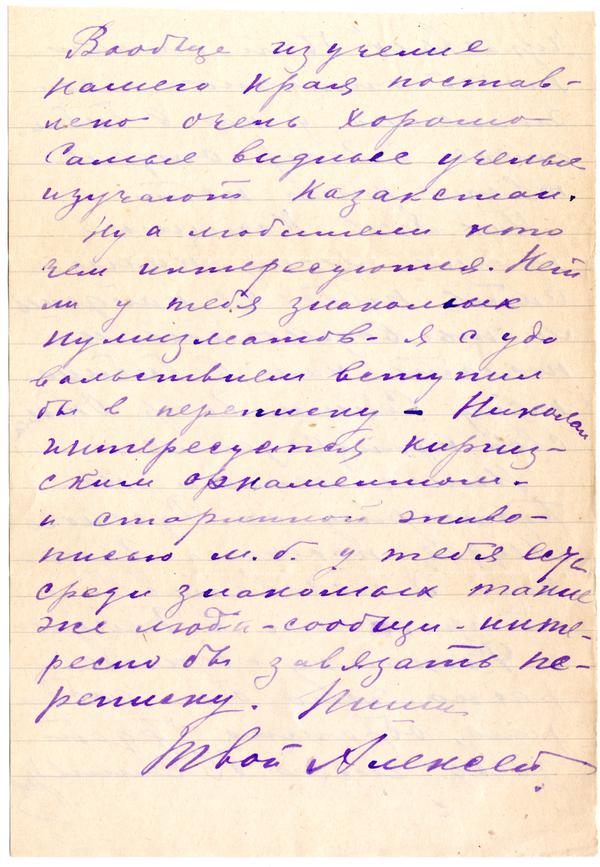 Вообще изучение
нашего края постав-
лено очень хорошо
Самые видные ученые
изучают Казакстан.
Ну а любители кто
чем интересуются. Нет
ли у тебя знакомых
нумизматов - я с удо
вольствием вступил
бы в переписку - Николай
интересуется киргиз-
ским орнаментом -
и старинной живо-
писью м. б. у тебя есть
среди знакомых такие
же люди - сообщи - инте-
ресно бы завязать пе-
реписку. Пиши
Твой Алексей.